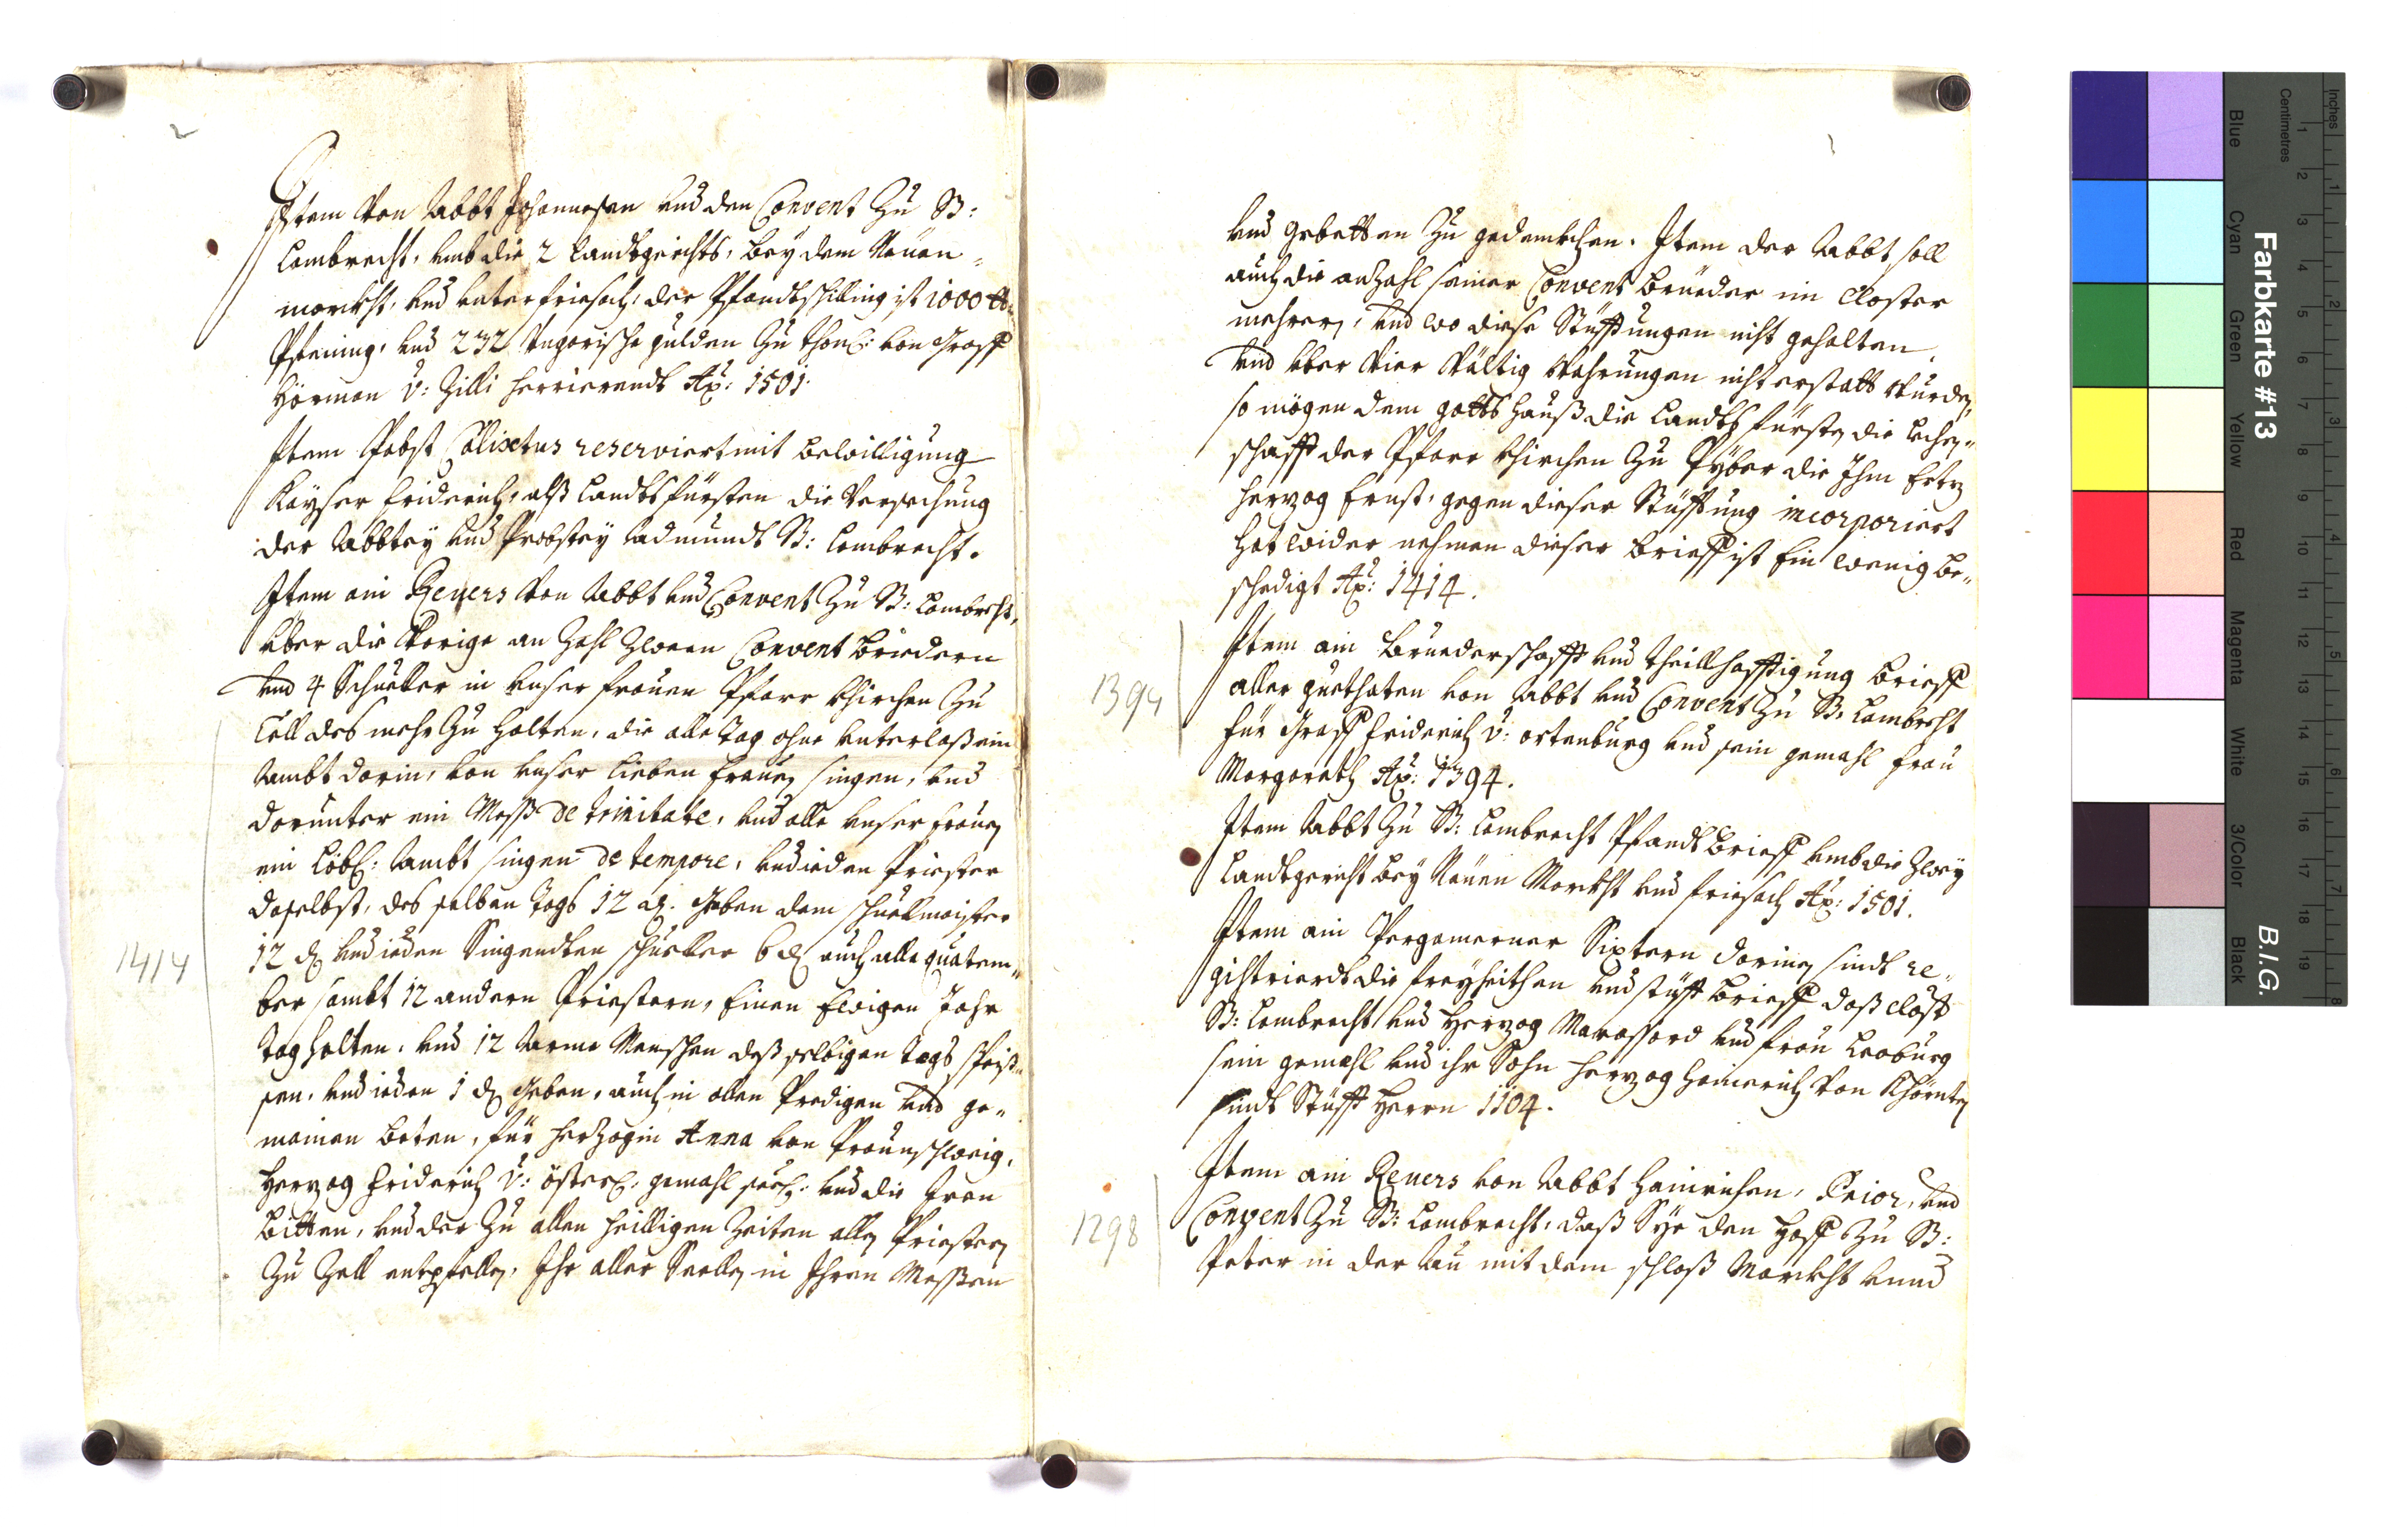 2
Item von Abbt Johannesen und den Convent zu St:
Lambrecht, umb die 2 Landtgerichts, bey dem Neuen=
markht, und unter Friesach, der Pfandtschilling ist 1000 lb
Pfening, und 232 Ungarische gulden zu thon: von Graff
Hörman v: Zilli herrierendt Aõ: 1501.
Item Pabst Calixtus reserviert mit bewilligung
Kayser Friderich, alß Landtsfürsten die Versechung
der Abbtey und Probstey Admundt St: Lambrecht.
Item ain Revers von Abbt und Convent zu St: Lambrecht,
über die Vorige an Zahl zween Convent Briedern
und 4 Schueller in unser frauen Pfarr Khirchen zu
Cell des mehr zu halten, die alle Tag ohne unterlaß ein
Ambt darin, von unser lieben frauen singen, und
darunter ein Mess de trinitate, und alle unser frauen
ein Löbl: Ambt singen de tempore, und ieden Priester
daselbst, des selben tags 12 d. Geben dem schuelmaister
12 d und ieden Singendten schueller 6 d auch alle quatem=
ber sambt 12 andern Priestern, Einen Ewigen Jahr
tag halten, und 12 Arme Menschen deß selbigen tags speiß=
sen, und ieden 1 d Geben, auch in allen Predigen und ge=
mainen beten, für Herzogin Anna von Praunschweig,
Herzog Friderich v: österr: gemahl seel: und die Iren
bitten, und der zu allen heilligen Zeiten allen Priestern
zu Zell entpfellen, Ihr aller Seellen in Ihren Messen
1414
1
und gebetten zu gedenkhen. Item der Abbt soll
auch die anzahl seiner Convent Brueder im Closter
mehren, und wo diese Stüfftungen nicht gehalten,
und über Vier Vältig Mahnungen nicht erstatt wurden,
so mögen dem gottshauß die Landts fürsten die lehen=
schafft der Pfarr Khirchen zu Pyber die Ihm Erz
herzog Ernst, gegen dieser Stüfftung incorporiert
hat wider nehmen dieser brieff ist Ein wenig be=
schedigt Aõ: 1414.
Item ain Bruederschafft und theillhafftigung brieff
aller guethaten von Abbt und Convent zu St: Lambrecht
für Graff Friderich v: ortenburg und sein gemahl frau
Margareth Aõ: 1394.
1394
Item Abbt zu St: Lambrecht Pfandtbrieff umb die Zwey
Landtgericht bey Neuen Markht und Friesach Aõ: 1501.
Item ain Pergamerner Sixtern darinen sindt re=
gistrierdt die freyheithen und stüfft brieff daß Clost
St: Lambrecht und Herzog Marassard und frau Leoburg
sein gemahl und ihr Sohn Herzog Heinerich von Khärnten
sindt Stüfft Herrn 1104.
Item ain Revers von Abbt Hainrichen, Prior, und
Convent zu St: Lambrecht, daß Sye den Hoff zu St:
Peter in der Au mit dem schloß Markht unnd
1298
Farbkarte #13
B.I.G.
Inches
Centimetres
Blue
Cyan
Green
Yellow
Red
Magenta
White
3/Color
Black
1 2 3 4 5 6 7 8 9 10 11 12 13 14 15 16 17 18 19
1 2 3 4 5 6 7 8